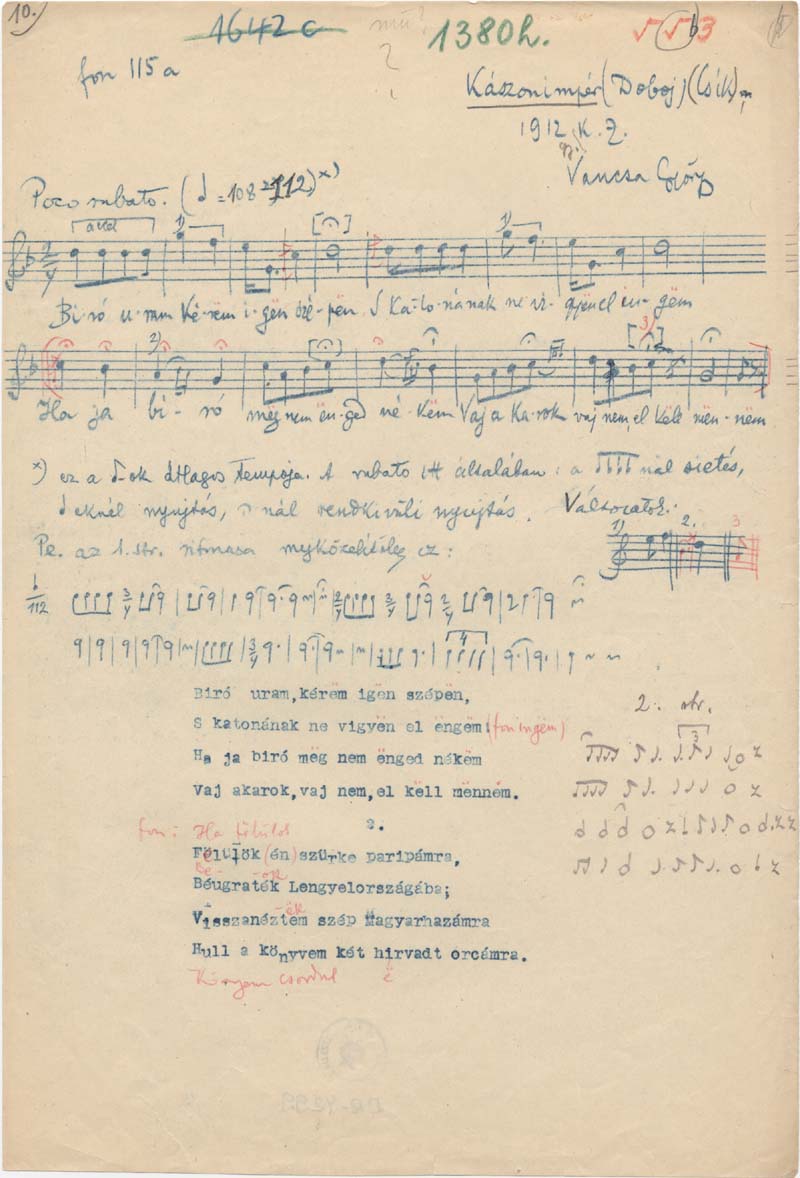 10.
1642c
mű?
1380h.
5 5 3
fon 115a
Kászonimpér (Doboj) (Csík) m,
1912 K. Z.
Vancsa György
Poco rubato. (♩ = 108-112) x)
Bi-ró u-ram ké-rëm i-gën szé-pën S ka-to-nának ne vi-gyënel ën-gëm
Ha ja bi-ró mëg nem ën-ged né-këm Vaj a ka-rok vaj nem el këll mën-nëm
x) ez a ♩-ok átlagos tempója. A rubato itt általában: a nál sietés,
eknél nyujtás, nál rendkivüli nyujtás. Változatok:
1) 2. 3
Pl. az 1. str. ritmusa megközelítőleg ez:
112
Biró uram, kérëm igën szépën,
2. str.
S katonának ne vigyën el ëngëm: (fon ingëm)
Ha ja biró mëg nem ënged nékëm
Vaj akarok, vaj nem, el këll mënnëm.
2.
fon: Ha fölülök
Fëlülök (én) szürke paripámra,
Be- -ok
Béugraték Lengyelországába;
-ék
Visszanéztem szép Magyarhazámra
Hull a könyvem két hirvadt orcámra.
Könyem csordul ë